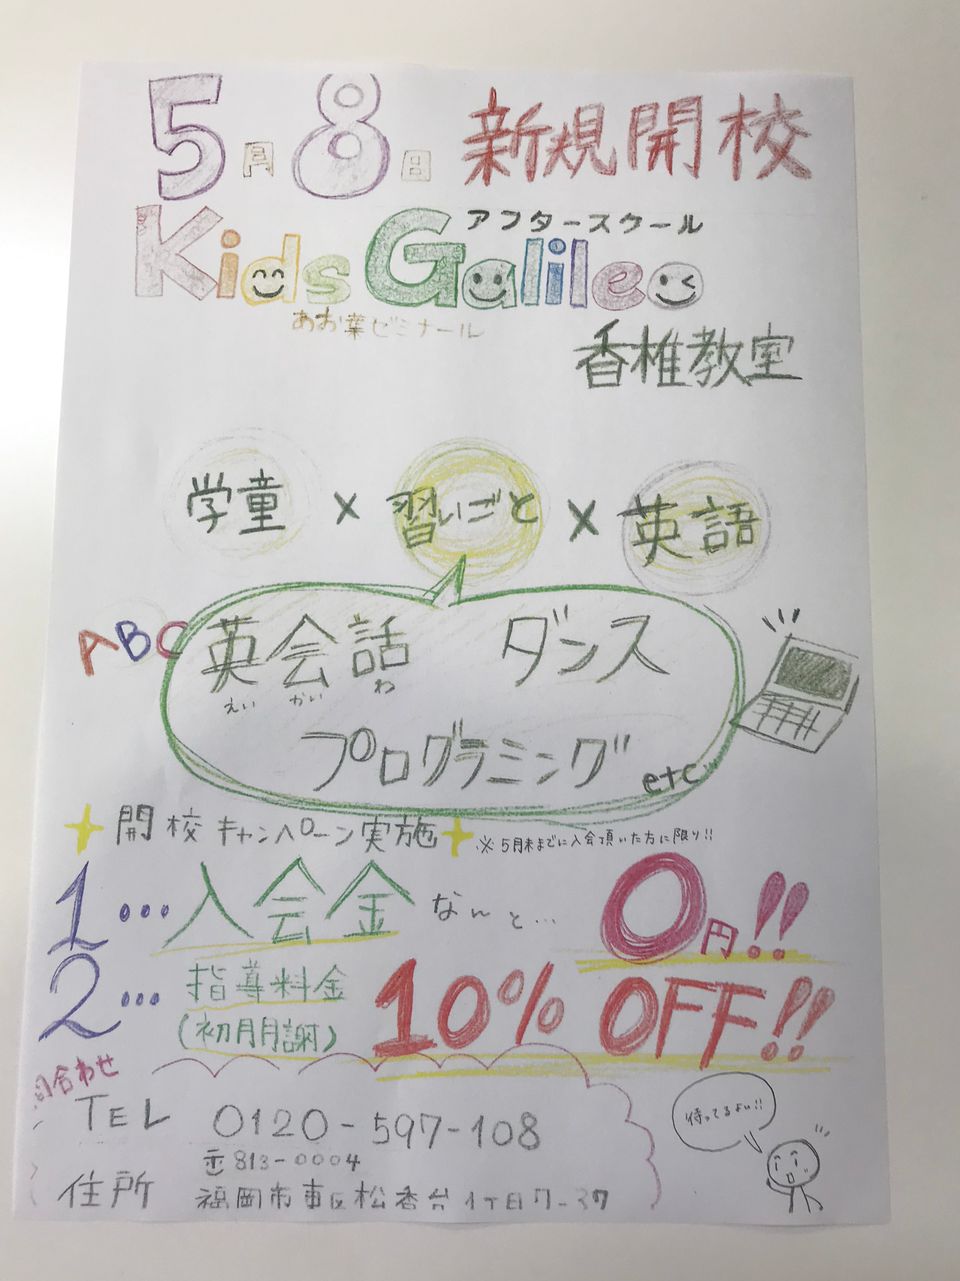 5月8日 新規開校
アフタースクール
Kids Galileo
あお葉ゼミナール
香椎教室
学童 × 習いごと × 英語
ABC
英会話 ダンス
えい かい わ
プログラミング
etc…
開校キャンペーン実施
※5月末までに入会頂いた方に限り!!
1…入会金 なんと… 0円!!
2…指導料金 10% OFF!!
(初月月謝)
問合わせ
TEL 0120-597-108
待ってるよ!!
〒813-0004
住所 福岡市東区松香台1丁目7-37